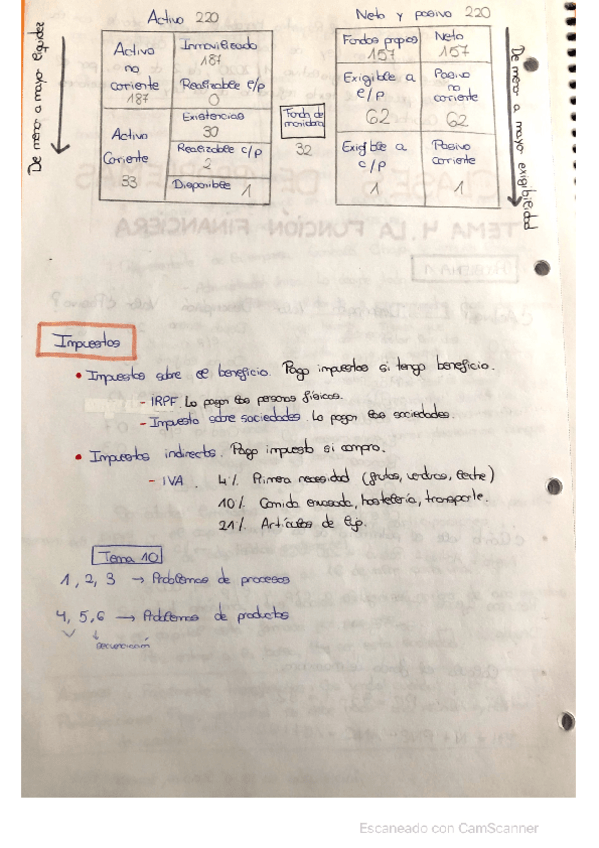 Activo 220
Neto y pasivo 220
De menor a mayor liquidez
Activo no corriente 187
Inmovilizado 187
Realizable e/p 0
Activo Corriente 33
Existencias 30
Realizable c/p 2
Disponible 1
Fondo de maniobra
32
Fondos propios 157
Neto 157
Exigible a e/p 62
Pasivo no corriente 62
Exigible a c/p 1
Pasivo corriente 1
De menor a mayor exigibilidad
Impuestos
• Impuestos sobre el beneficio. Pago impuestos si tengo beneficio.
- IRPF. Lo pagan las personas físicas.
- Impuesto sobre sociedades. Lo pagan las sociedades.
• Impuestos indirectos. Pago impuesto si compro.
- IVA. 4% Primera necesidad (frutas, verduras, leche)
10% Comida envasada, hostelería, transporte.
21% Artículos de lujo.
Tema 10
1, 2, 3 → Problemas de procesos
4, 5, 6 → Problemas de productos
Escaneado con CamScanner